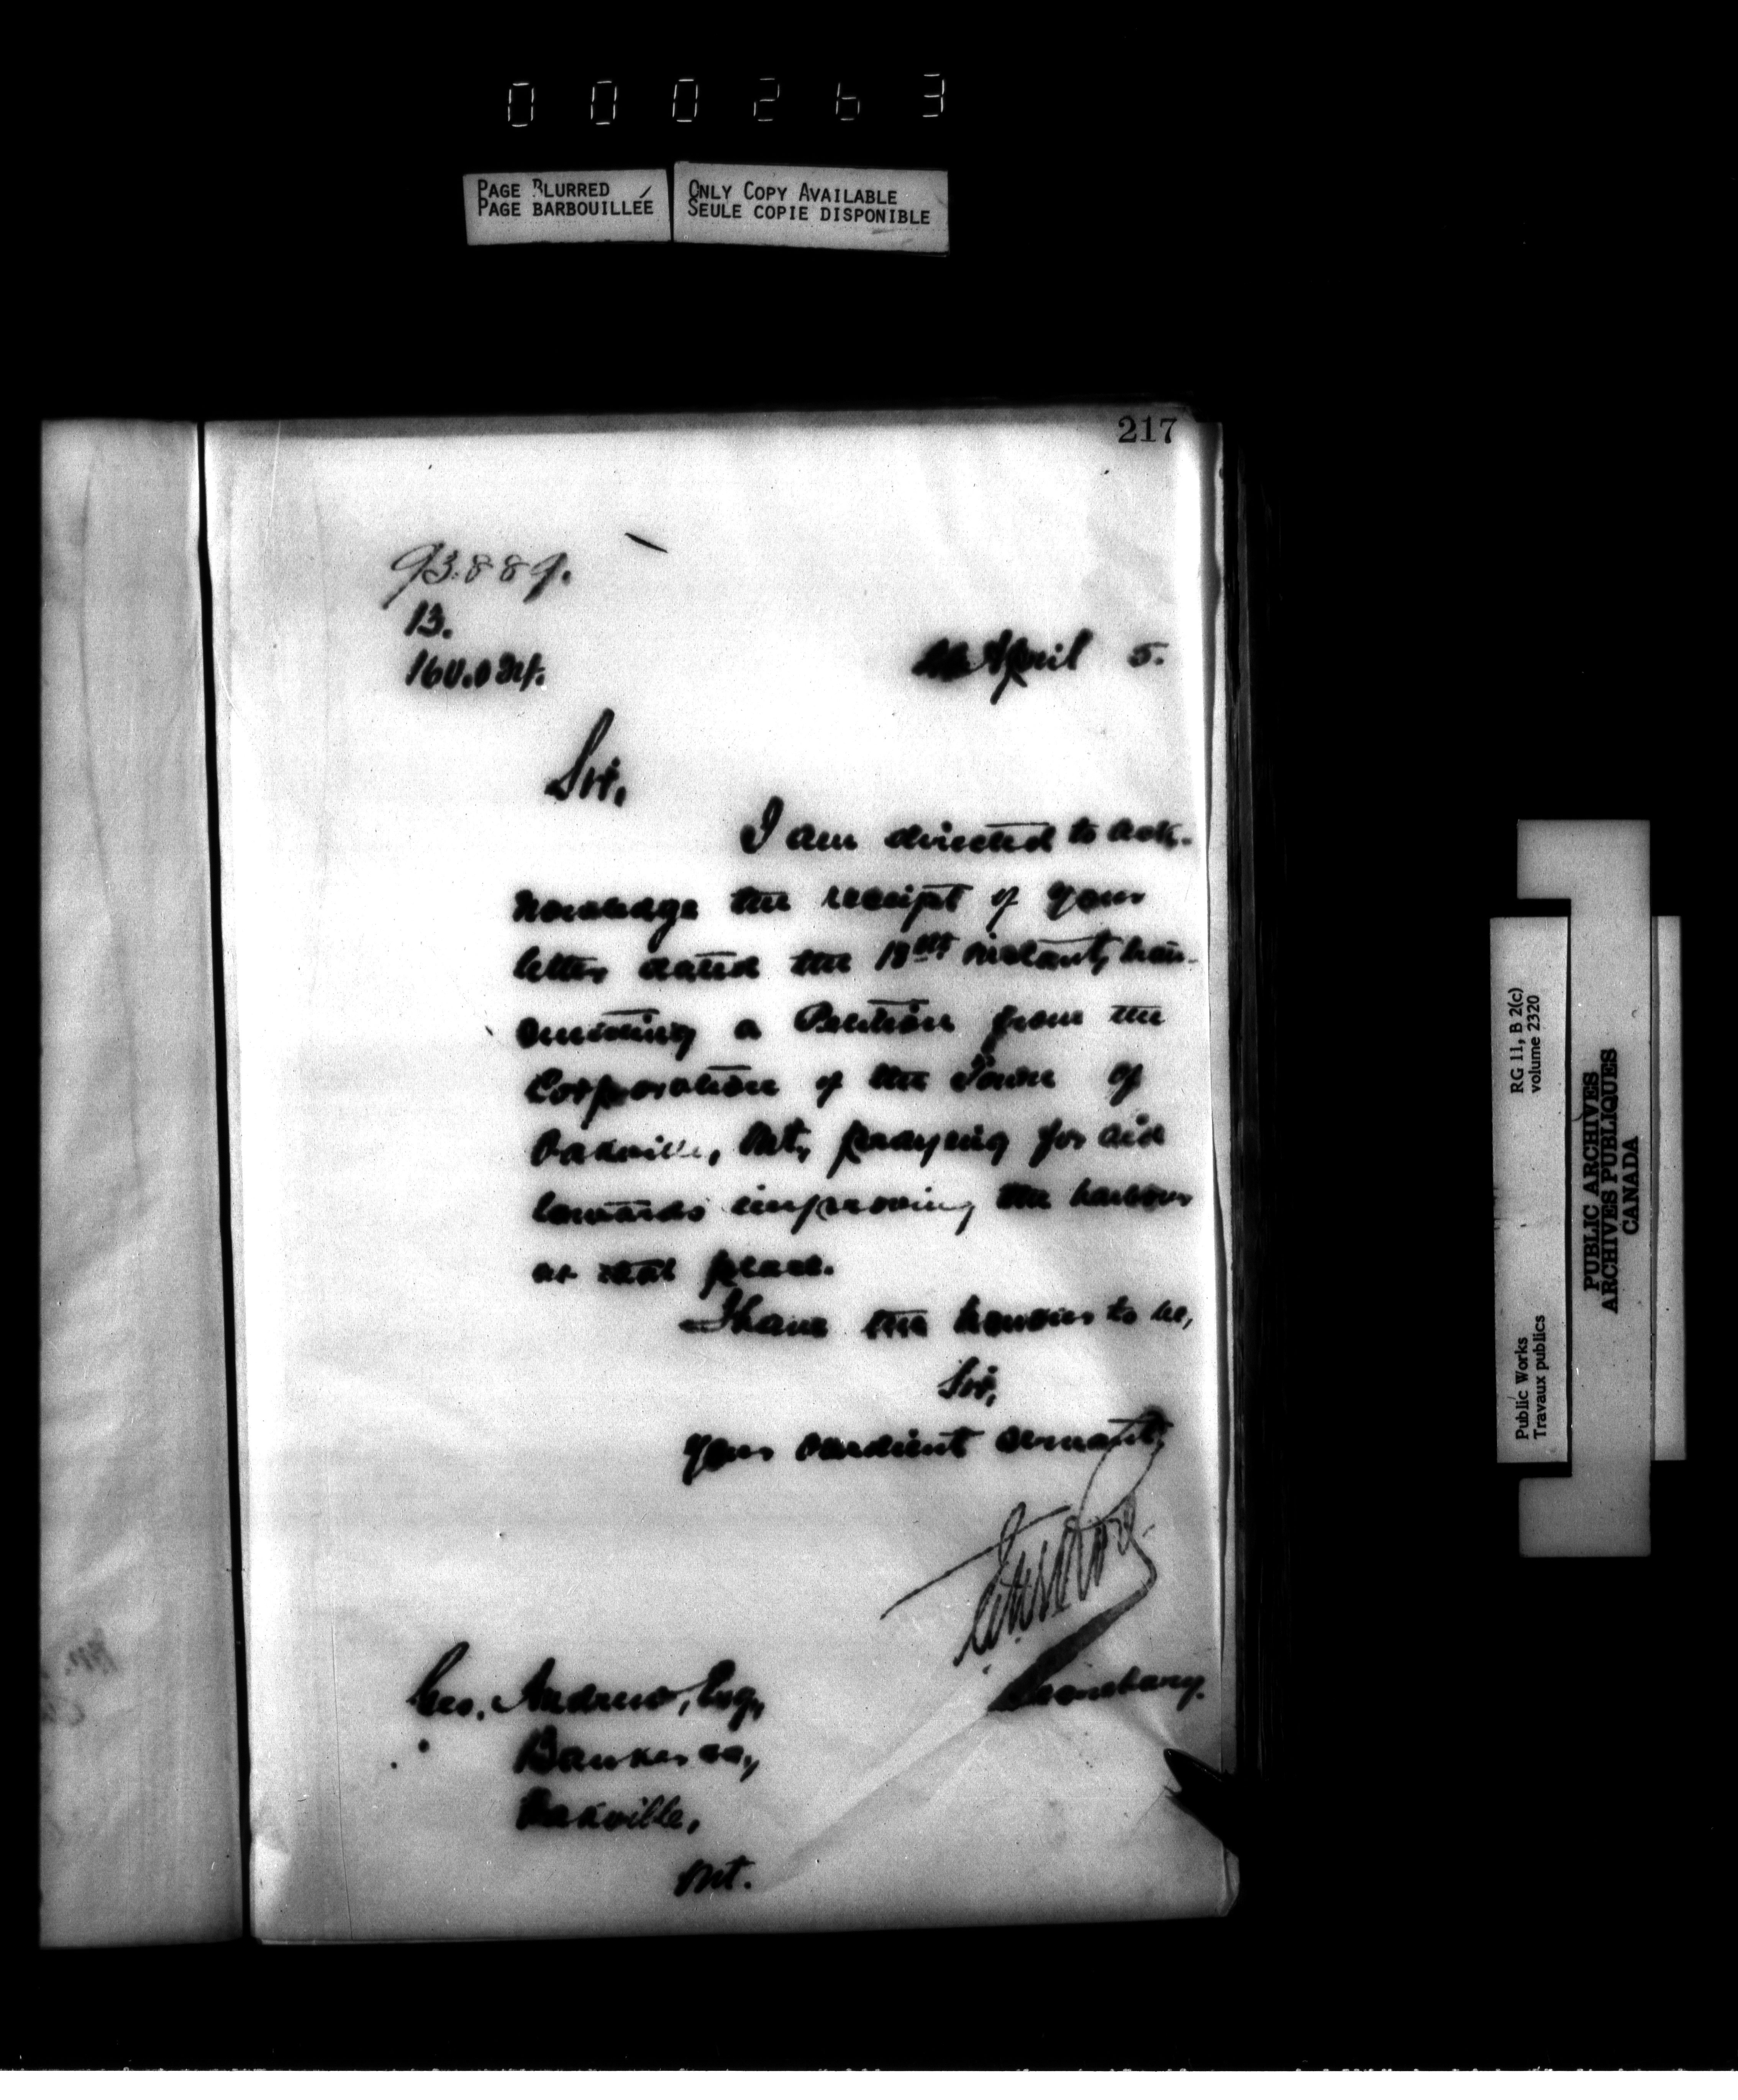 000263
PAGE BLURRED
PAGE BARBOUILLÉE
ONLY COPY AVAILABLE
SEULE COPIE DISPONIBLE
217
93.889.
13.
April 5.
Sir,
I am directed to ack-
nowledge the receipt of your
letter dated the 18th instant, trans-
mitting a Petition from the
Corporation of the Town of
Oakville, Ont, praying for aid
towards improving the harbour
at that place.
I have the honour to be,
Sir,
Your obedient servant,
Secretary.
Geo. Andrew, Esq,
Banker &c,
Oakville,
Ont.
RG 11, B 2(c)
volume 2320
Public Works
Travaux publics
PUBLIC ARCHIVES
ARCHIVES PUBLIQUES
CANADA